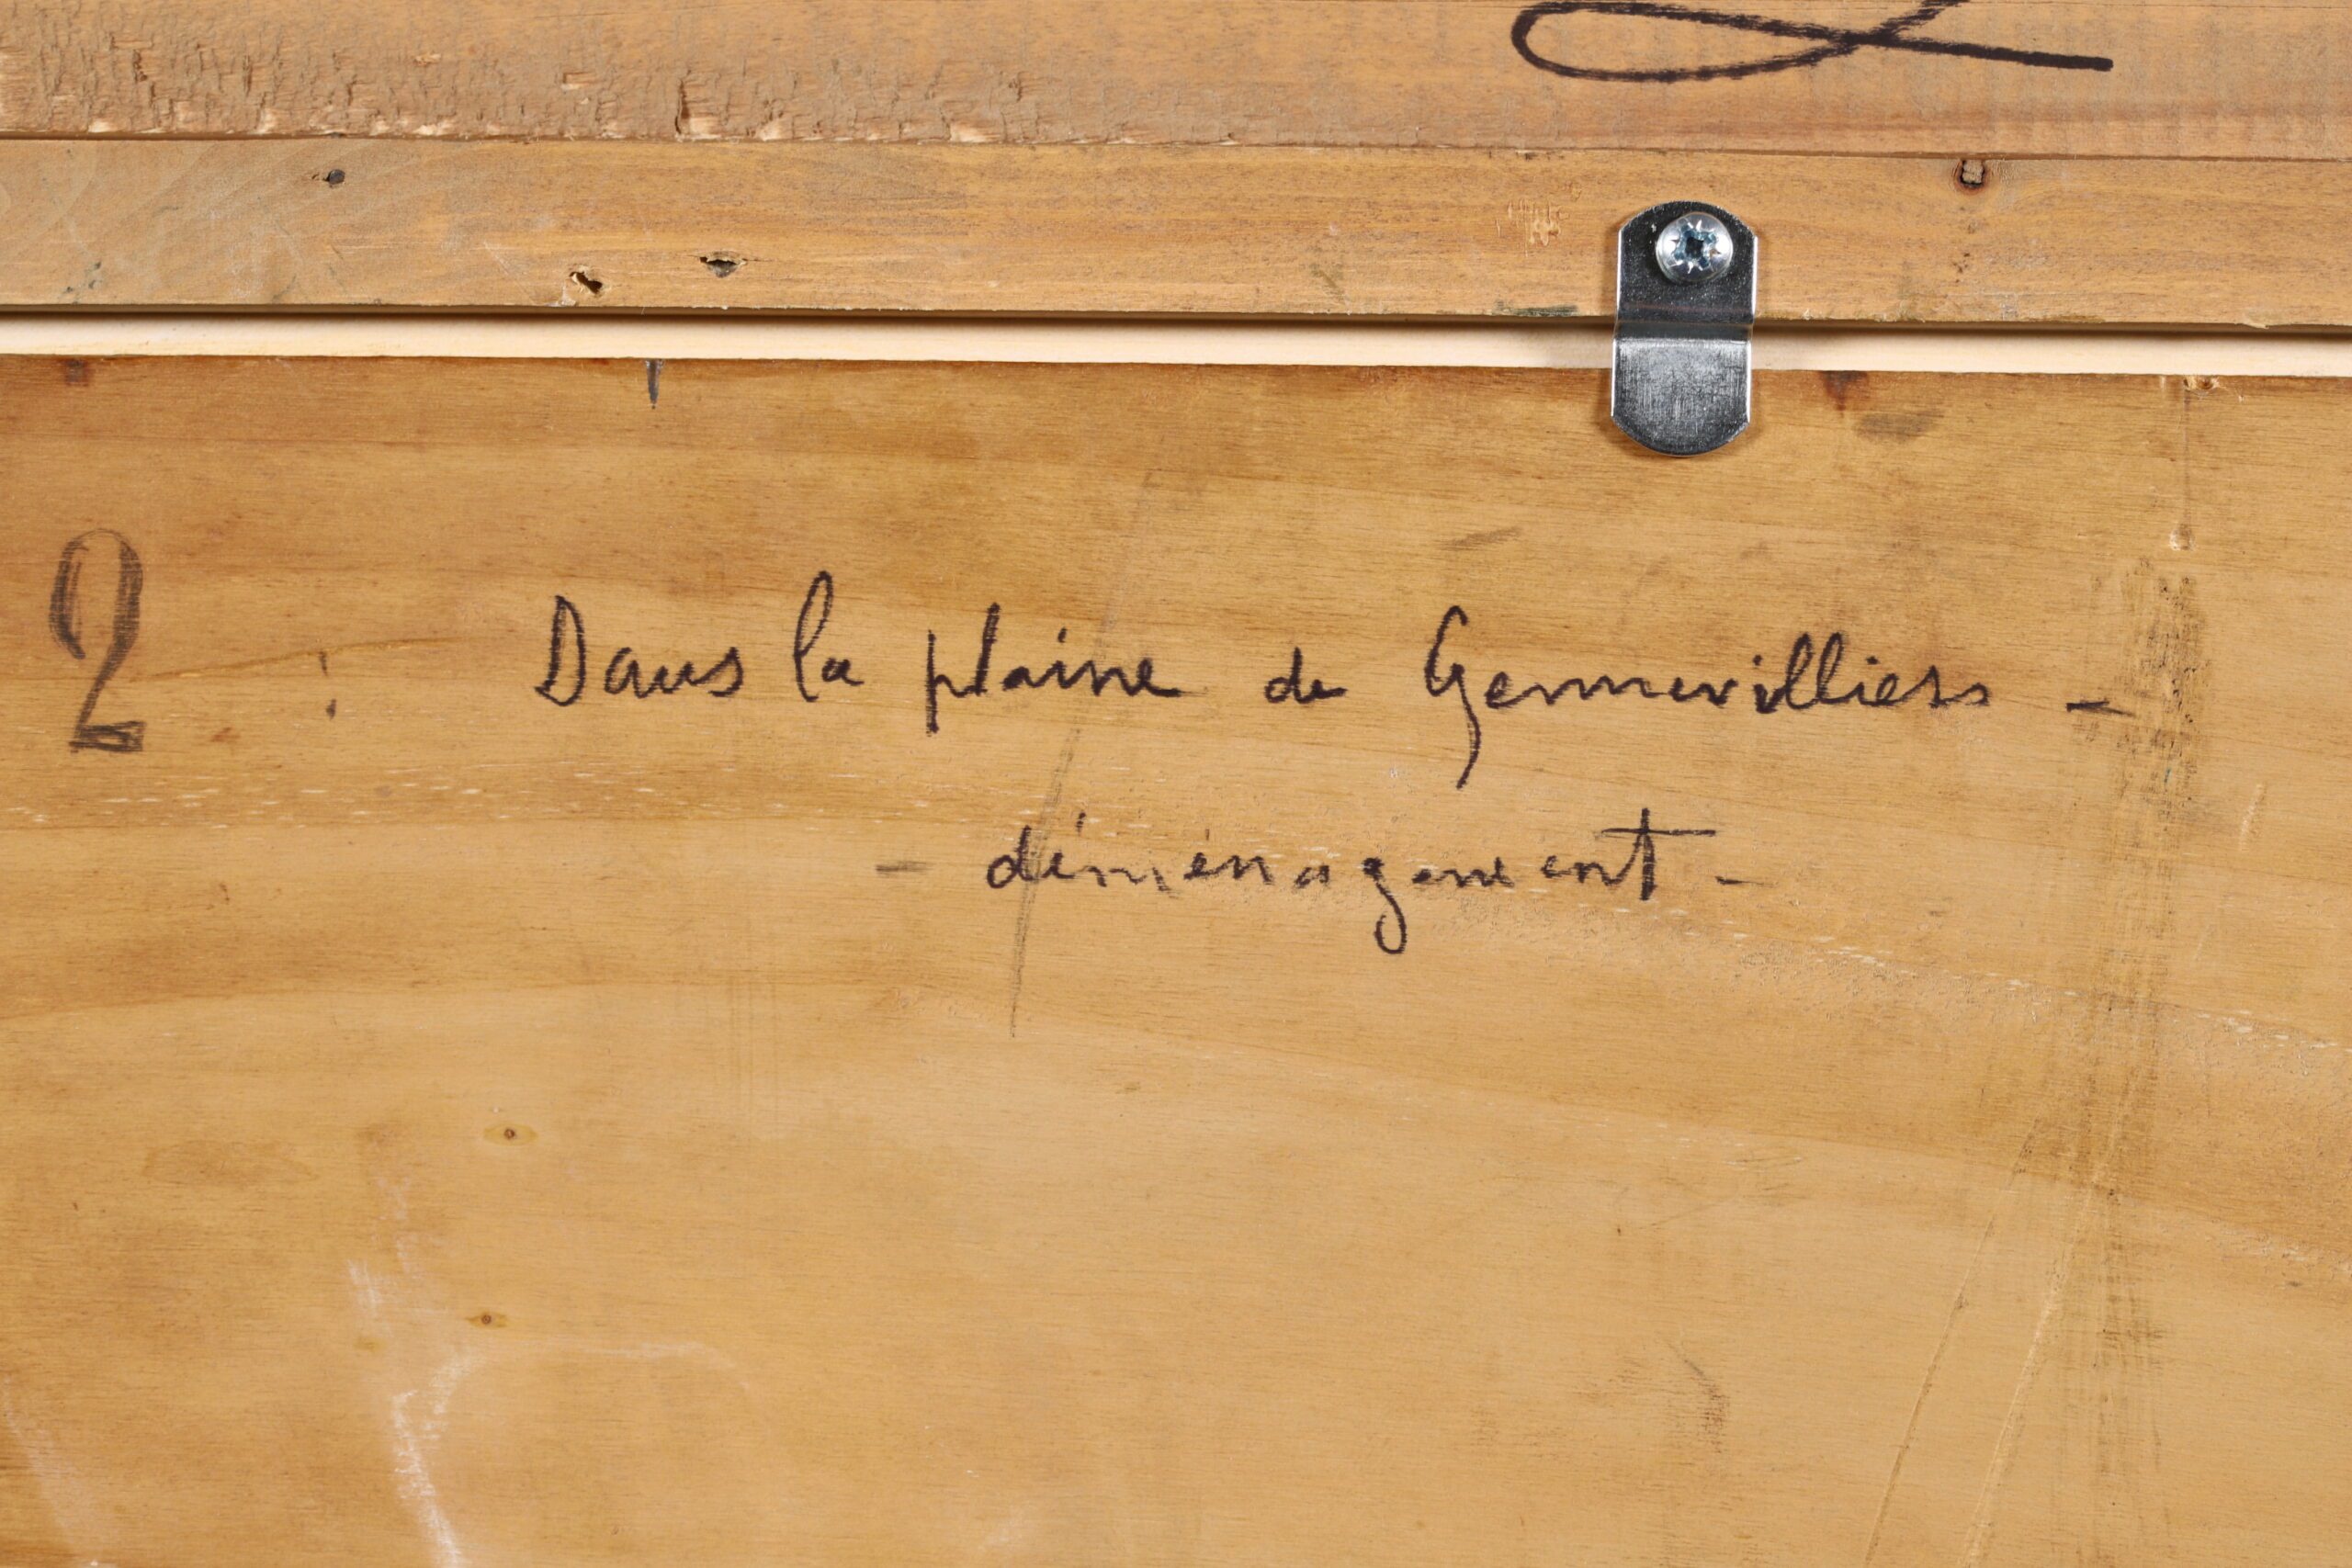 2 : Dans la plaine de Gennevilliers -
- déménagement -